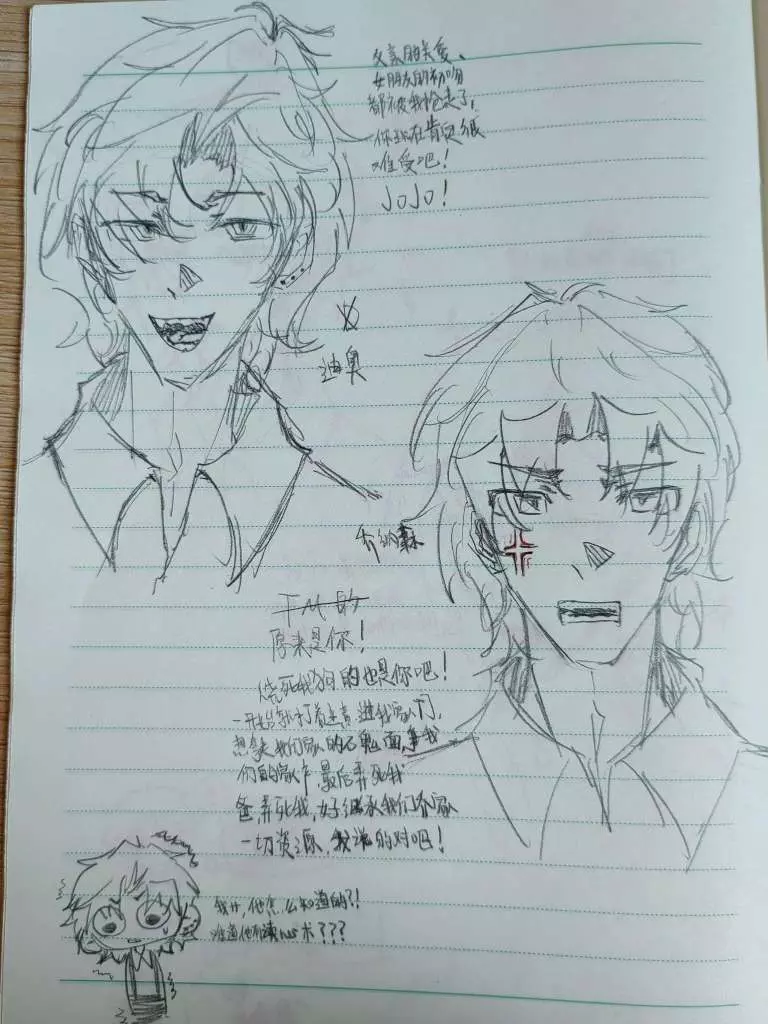 父亲的关爱、
女朋友的初吻
都被我抢走了,
你现在肯定很
难受吧!
JOJO!
迪奥
乔纳森
TM的
原来是你!
烧死我狗的也是你吧!
一开始就打着主意进我家门,
想拿我们家的石鬼面,争我
们的家产,最后弄死我
爸弄死我,好继承我们乔家
一切资源,我说的对吧!
我廾,他怎么知道的?!
难道他有读心术???